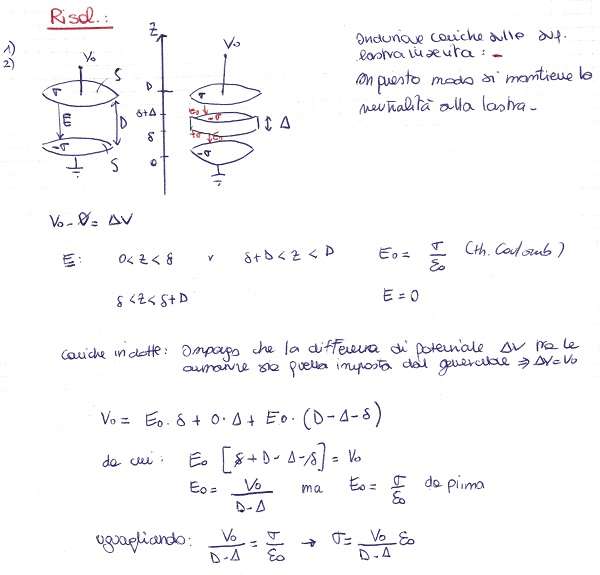 Risol.:
1)
2)
Vo
S
σ
E
D
-σ
S
Z
D
δ+Δ
δ
0
Vo
σ
Eo
-σ
+σ
Eo
-σ
Δ
cariche sulle sup.
lastra inserita: -
In questo modo si mantiene la
neutralità alla lastra -
Vo - 0 = ΔV
E: 0<z<δ v δ+D<z<D Eo = σ/εo (th. Coulomb)
δ<z<δ+D E=0
cariche indotte: Impongo che la differenza di potenziale ΔV tra le
armature sia quella imposta dal generatore ⇒ ΔV=Vo
Vo = Eo·δ + 0·Δ + Eo·(D-Δ-δ)
da cui: Eo [δ+D-Δ-δ] = Vo
Eo = Vo/D-Δ ma Eo = σ/εo da prima
uguagliando: Vo/D-Δ = σ/εo → σ = Vo/D-Δ εo